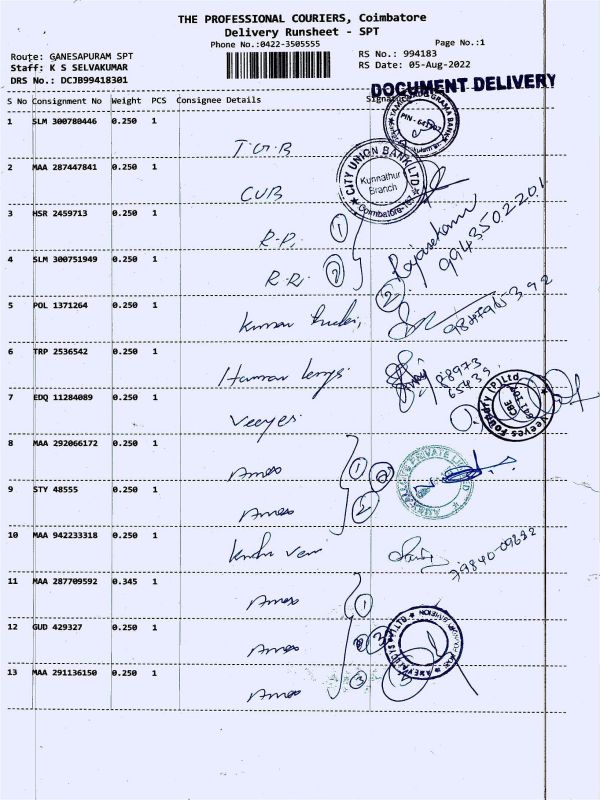 THE PROFESSIONAL COURIERS, Coimbatore
Delivery Runsheet - SPT
Phone No.:0422-3505555
Page No.:1
Route: GANESAPURAM SPT
RS No.: 994183
Staff: K S SELVAKUMAR
RS Date: 05-Aug-2022
DRS No.: DCJB99418301
DOCUMENT DELIVERY
S No Consignment No Weight PCS Consignee Details
1 SLM 300780446 0.250 1
T.G.B
2 MAA 287447841 0.250 1
CUB
CITY UNION BANK LTD
Kunnathur
Branch
Coimbatore
3 HSR 2459713 0.250 1
R.P. 1
4 SLM 300751949 0.250 1
2
Rajasekaran
9943502201
2
5 POL 1371264 0.250 1
Kumar
6 TRP 2536542 0.250 1
88973
65439
7 EDQ 11284089 0.250 1
Veeyes
Veeyes Foundry (P) Ltd
CBE
641 107
8 MAA 292066172 0.250 1
Ames 1 2
PRIVATE
9 STY 48555 0.250 1
Ames 2
10 MAA 942233318 0.250 1
79840-09692
11 MAA 287709592 0.345 1
Ames 1
12 GUD 429327 0.250 1
Ames 2 3
13 MAA 291136150 0.250 1
Ames 3